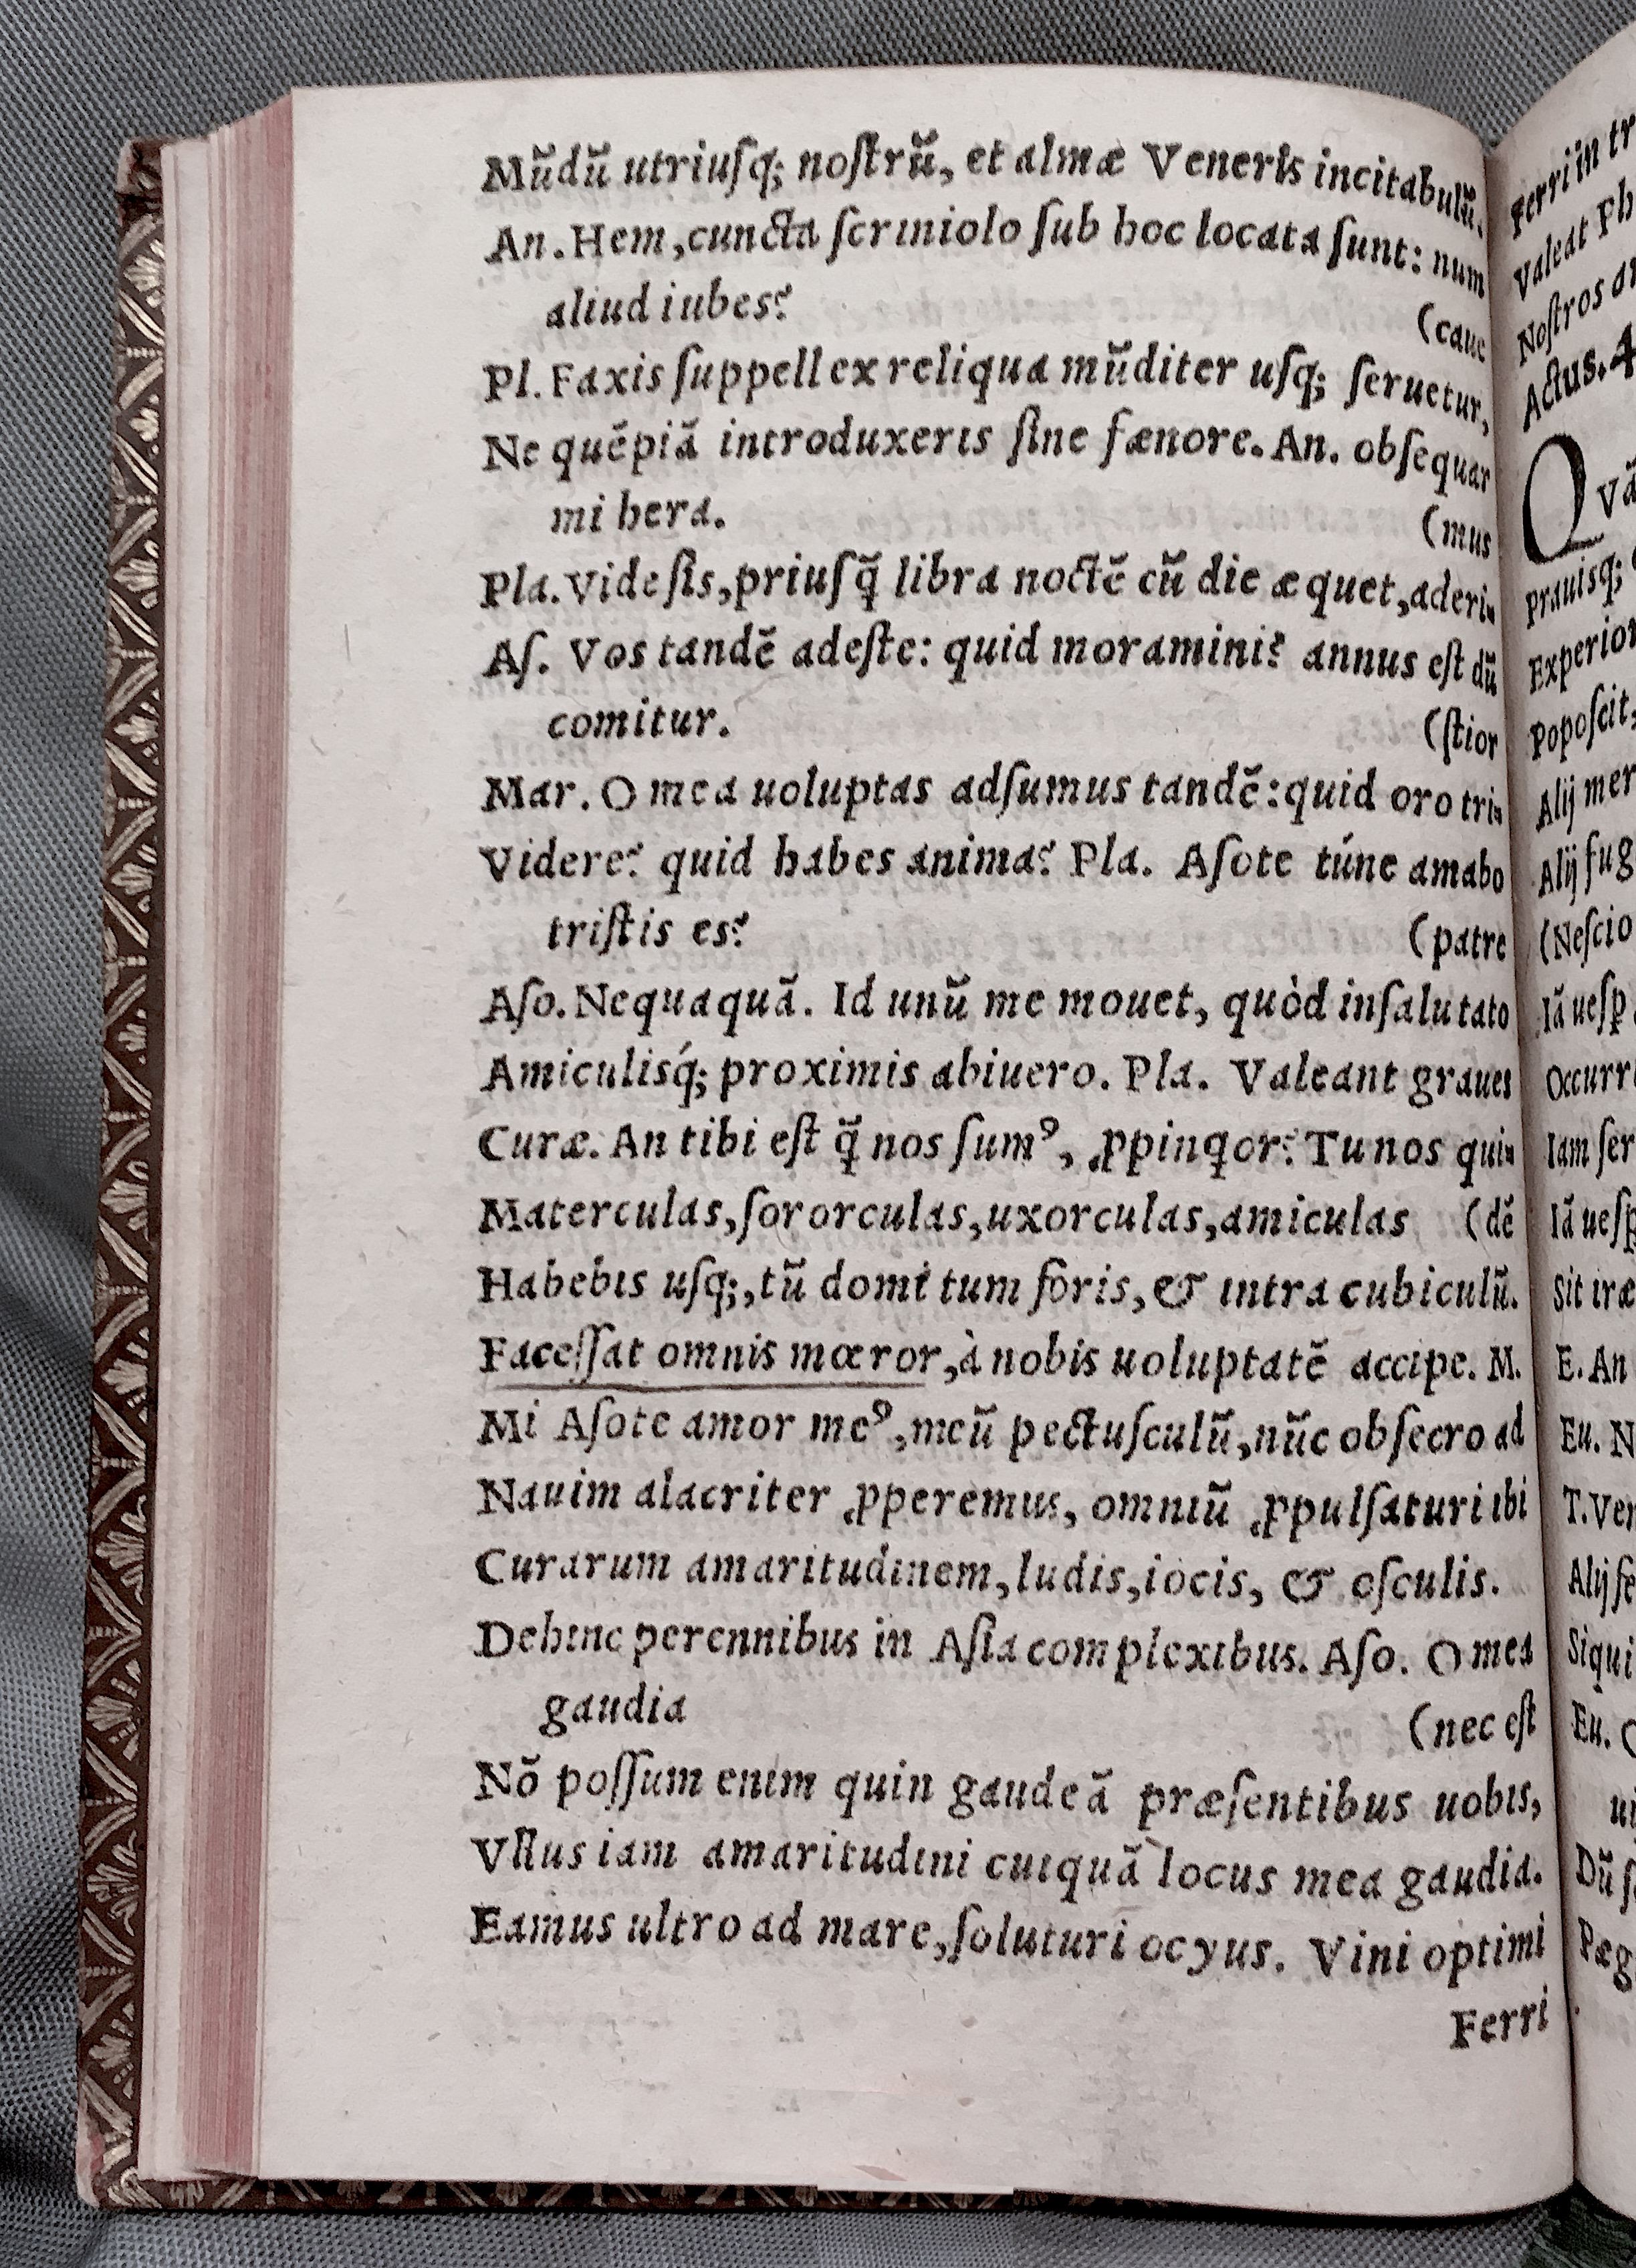 Mũdũ utriuſq; noſtrũ, et almæ Veneris incitabulũ.
An. Hem, cuncta ſcriniolo ſub hoc locata ſunt: num
aliud iubes? (caue
Pl. Faxis ſuppellex reliqua mũditer uſq; ſeruetur,
Ne quẽpiã introduxeris ſine fænore. An. obſequar
mi hera. (mus
Pla. Vide ſis, priuſq̃ libra noctẽ cũ die æquet, aderi-
Aſ. Vos tandẽ adeſte: quid moramini? annus eſt dũ
comitur. (ſtior
Mar. O mea uoluptas adſumus tandẽ: quid oro tri-
Videre? quid habes anima? Pla. Aſote túne amabo
triſtis es? (patre
Aſo. Nequaquã. Id unũ me mouet, quòd inſalutato
Amiculisq́; proximis abiuero. Pla. Valeant graues
Curæ. An tibi eſt q̃ nos ſumꝰ, ꝓpinqor? Tu nos qui-
Materculas, ſororculas, uxorculas, amiculas (dẽ
Habebis uſq;, tũ domi tum foris, & intra cubiculũ.
Faceſſat omnis mœror, à nobis uoluptatẽ accipe. M.
Mi Aſote amor meꝰ, meũ pectuſculũ, nũc obſecro ad
Nauim alacriter ꝓperemus, omniũ ꝓpulſaturi ibi
Curarum amaritudinem, ludis, iocis, & oſculis.
Dehinc perennibus in Aſia complexibus. Aſo. O mea
gaudia (nec eſt
Nõ poſſum enim quin gaudeã præſentibus uobis,
Vllus iam amaritudini cuiquã locus mea gaudia.
Eamus ultro ad mare, ſoluturi ocyus. Vini optimi
Ferri
Ferri in
Valeat
Noſtros
Actus. 4
prauisq;
Experior
Popoſcit,
Alij
Alij
(Neſcio
Iã
Iam
Iã
Sit iræ
E. An
Eu.
Alij
Siqui
Eu.
Dũ